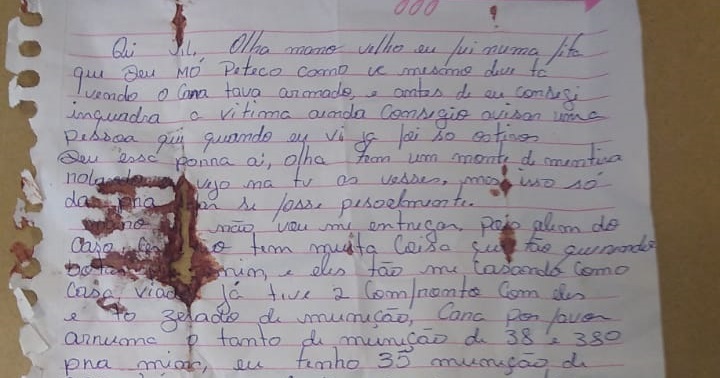 Qi Jil, Olha mano velho eu fui numa fita
que Deu MÓ Peteco como vc mesmo deve ta
vendo o Cana tava armado, e antes de eu consegi
inquadra a vitima ainda Consegio avisar uma
pessoa qui quando eu vi ja foi so os tiros
Deu essa porra ai, olha tem um monte de mentira
vejo na tv as vesses, mes isso só
da pra se fosse pesoelmente.
não vou me entregar, pois alem do
Caso tem muita Coisa que tão querendo
mim, e eles tão me Casando como
Casa viado já tive 2 Comfronto Com eles
e to zerado de munição, Cara por favor
arruma o tanto de munição de 38 e 380
pra mim, eu tenho 35 munição de